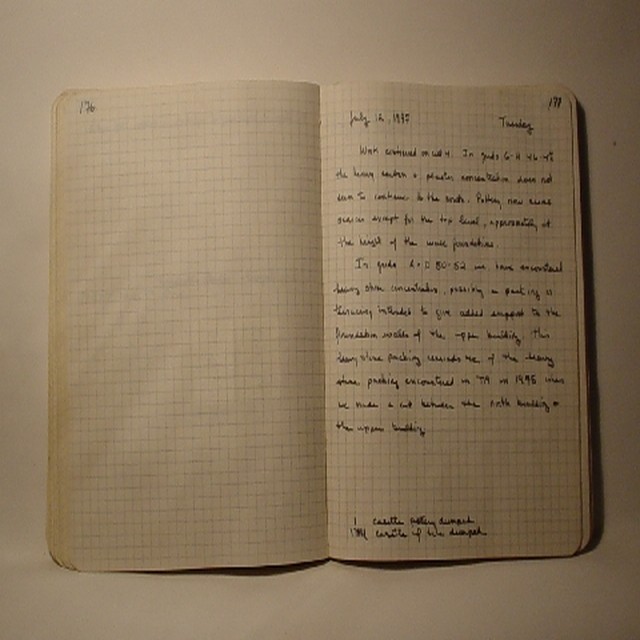 176
177
July 12, 1995 Tuesday
Work continued on unit 4. In grids G-H 46-48
the heavy carbon & plaster concentration does not
seem to continue to the south. Pottery now seems
scarce except for the top level, approximately at
the height of the wall foundations.
In grids A-D 50-52 we have encountered
heavy stone concentration, possibly a packing
intended to give added support to the
foundation walls of the upper building. This
heavy stone packing reminds me of the heavy
stone packing encountered in T4 in 1995 when
we made a cut between the north building &
the upper building.
1 crate pottery dumped
crate of tile dumped